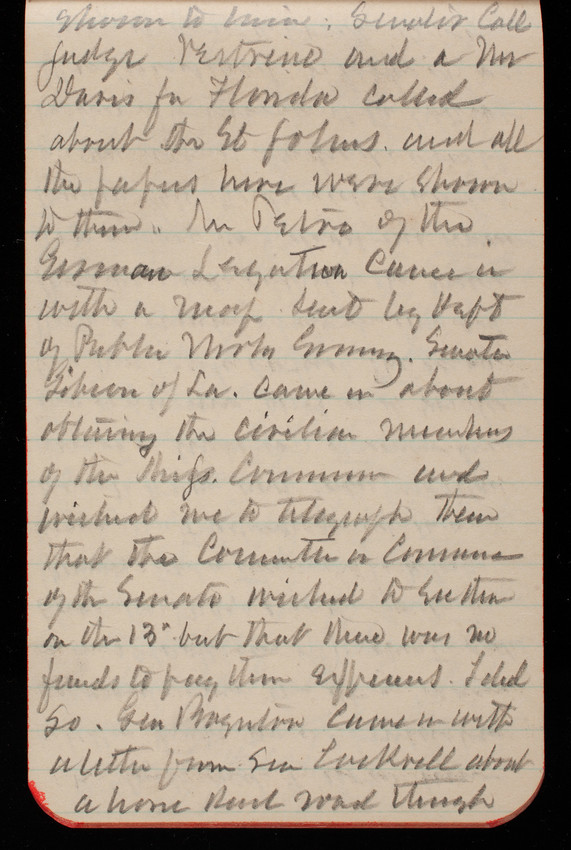 shown to him. Senator Call
Judge Vestrine and a Mr
Davis fr Florida called
about the St Johns. and all
the papers here were shown
to them. Mr Petro of the
German Legation came in
with a map sent by Dept
of Public Works Germany. Senator
Gibson of La. came in about
obtaining the civilian members
of the Miss. Commission and
wished me to telegraph them
that the Committee on Commerce
of the Senate wished to see them
on the 13" but that there was no
funds to pay them expenses. I did
so. Gen Boynton came in with
a letter from Sen Cockrell about
a horse that was though